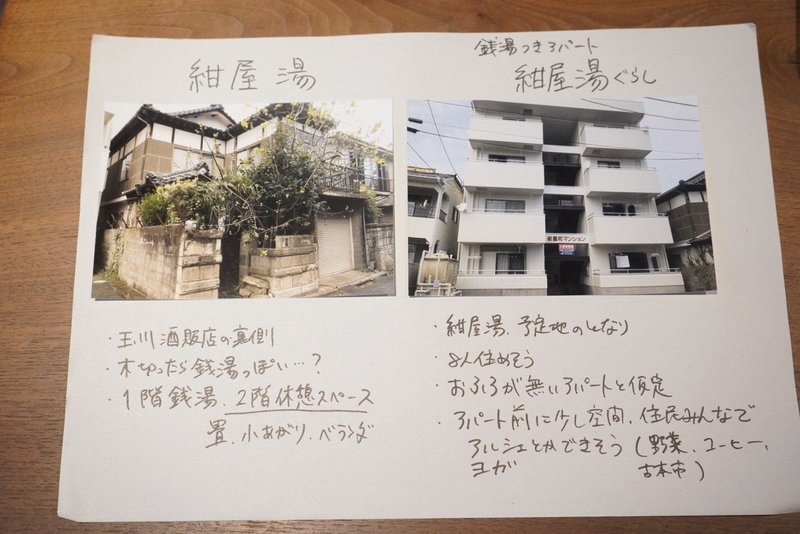 紺屋湯
・玉川酒販店の裏側
・木切ったら銭湯っぽい…?
・1階銭湯、2階休憩スペース
畳、小あがり、ベランダ
銭湯つきアパート
紺屋湯ぐらし
紺屋町マンション
・紺屋湯、予定地のとなり
・8人住めそう
・おふろが無いアパートと仮定
・アパート前に少し空間、住民みんなで
マルシェとかできそう(野菜、コーヒー、
ヨガ 古本市)